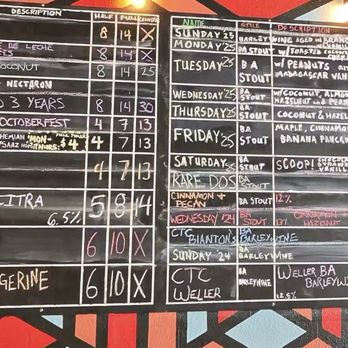 DESCRIPTION HALF FULL
8 14 X
DE LECHE 8 14 X
COCONUT 8 14 25
NECTARON
3 YEARS 8 14 30
OCTOBERFEST 4 7 13
"MON- $4 4 7 13
SAAZ
4 7 13
CITRA 6.5% 5 8 14
6 10 X
GERINE 6 10 X
NAME STYLE DESCRIPTION
SUNDAY 25 BARLEYWINE AGED IN BRANDY
MONDAY 25 BA STOUT W/ TOASTED COCONUT
TUESDAY 25 BA STOUT W/ PEANUTS
MADAGASCAR VAN
WEDNESDAY 25 BA STOUT W/ COCONUT, ALMOND
HAZELNUT
THURSDAY 25 BA STOUT COCONUT & HAZELNUT
FRIDAY 25 BA STOUT MAPLE, CINNAMON
BANANA PANCAKE
SATURDAY 25 BA STOUT SCOOP!
RARE DOS BA STOUT
CINNAMON + PECAN BA STOUT 12%
WEDNESDAY 24 BA STOUT 13% CINNAMON + HAZELNUT
CTC BLANTON'S BA BARLEYWINE
SUNDAY 24 BA BARLEYWINE
CTC WELLER BA BARLEYWINE WELLER BA
BARLEYWINE